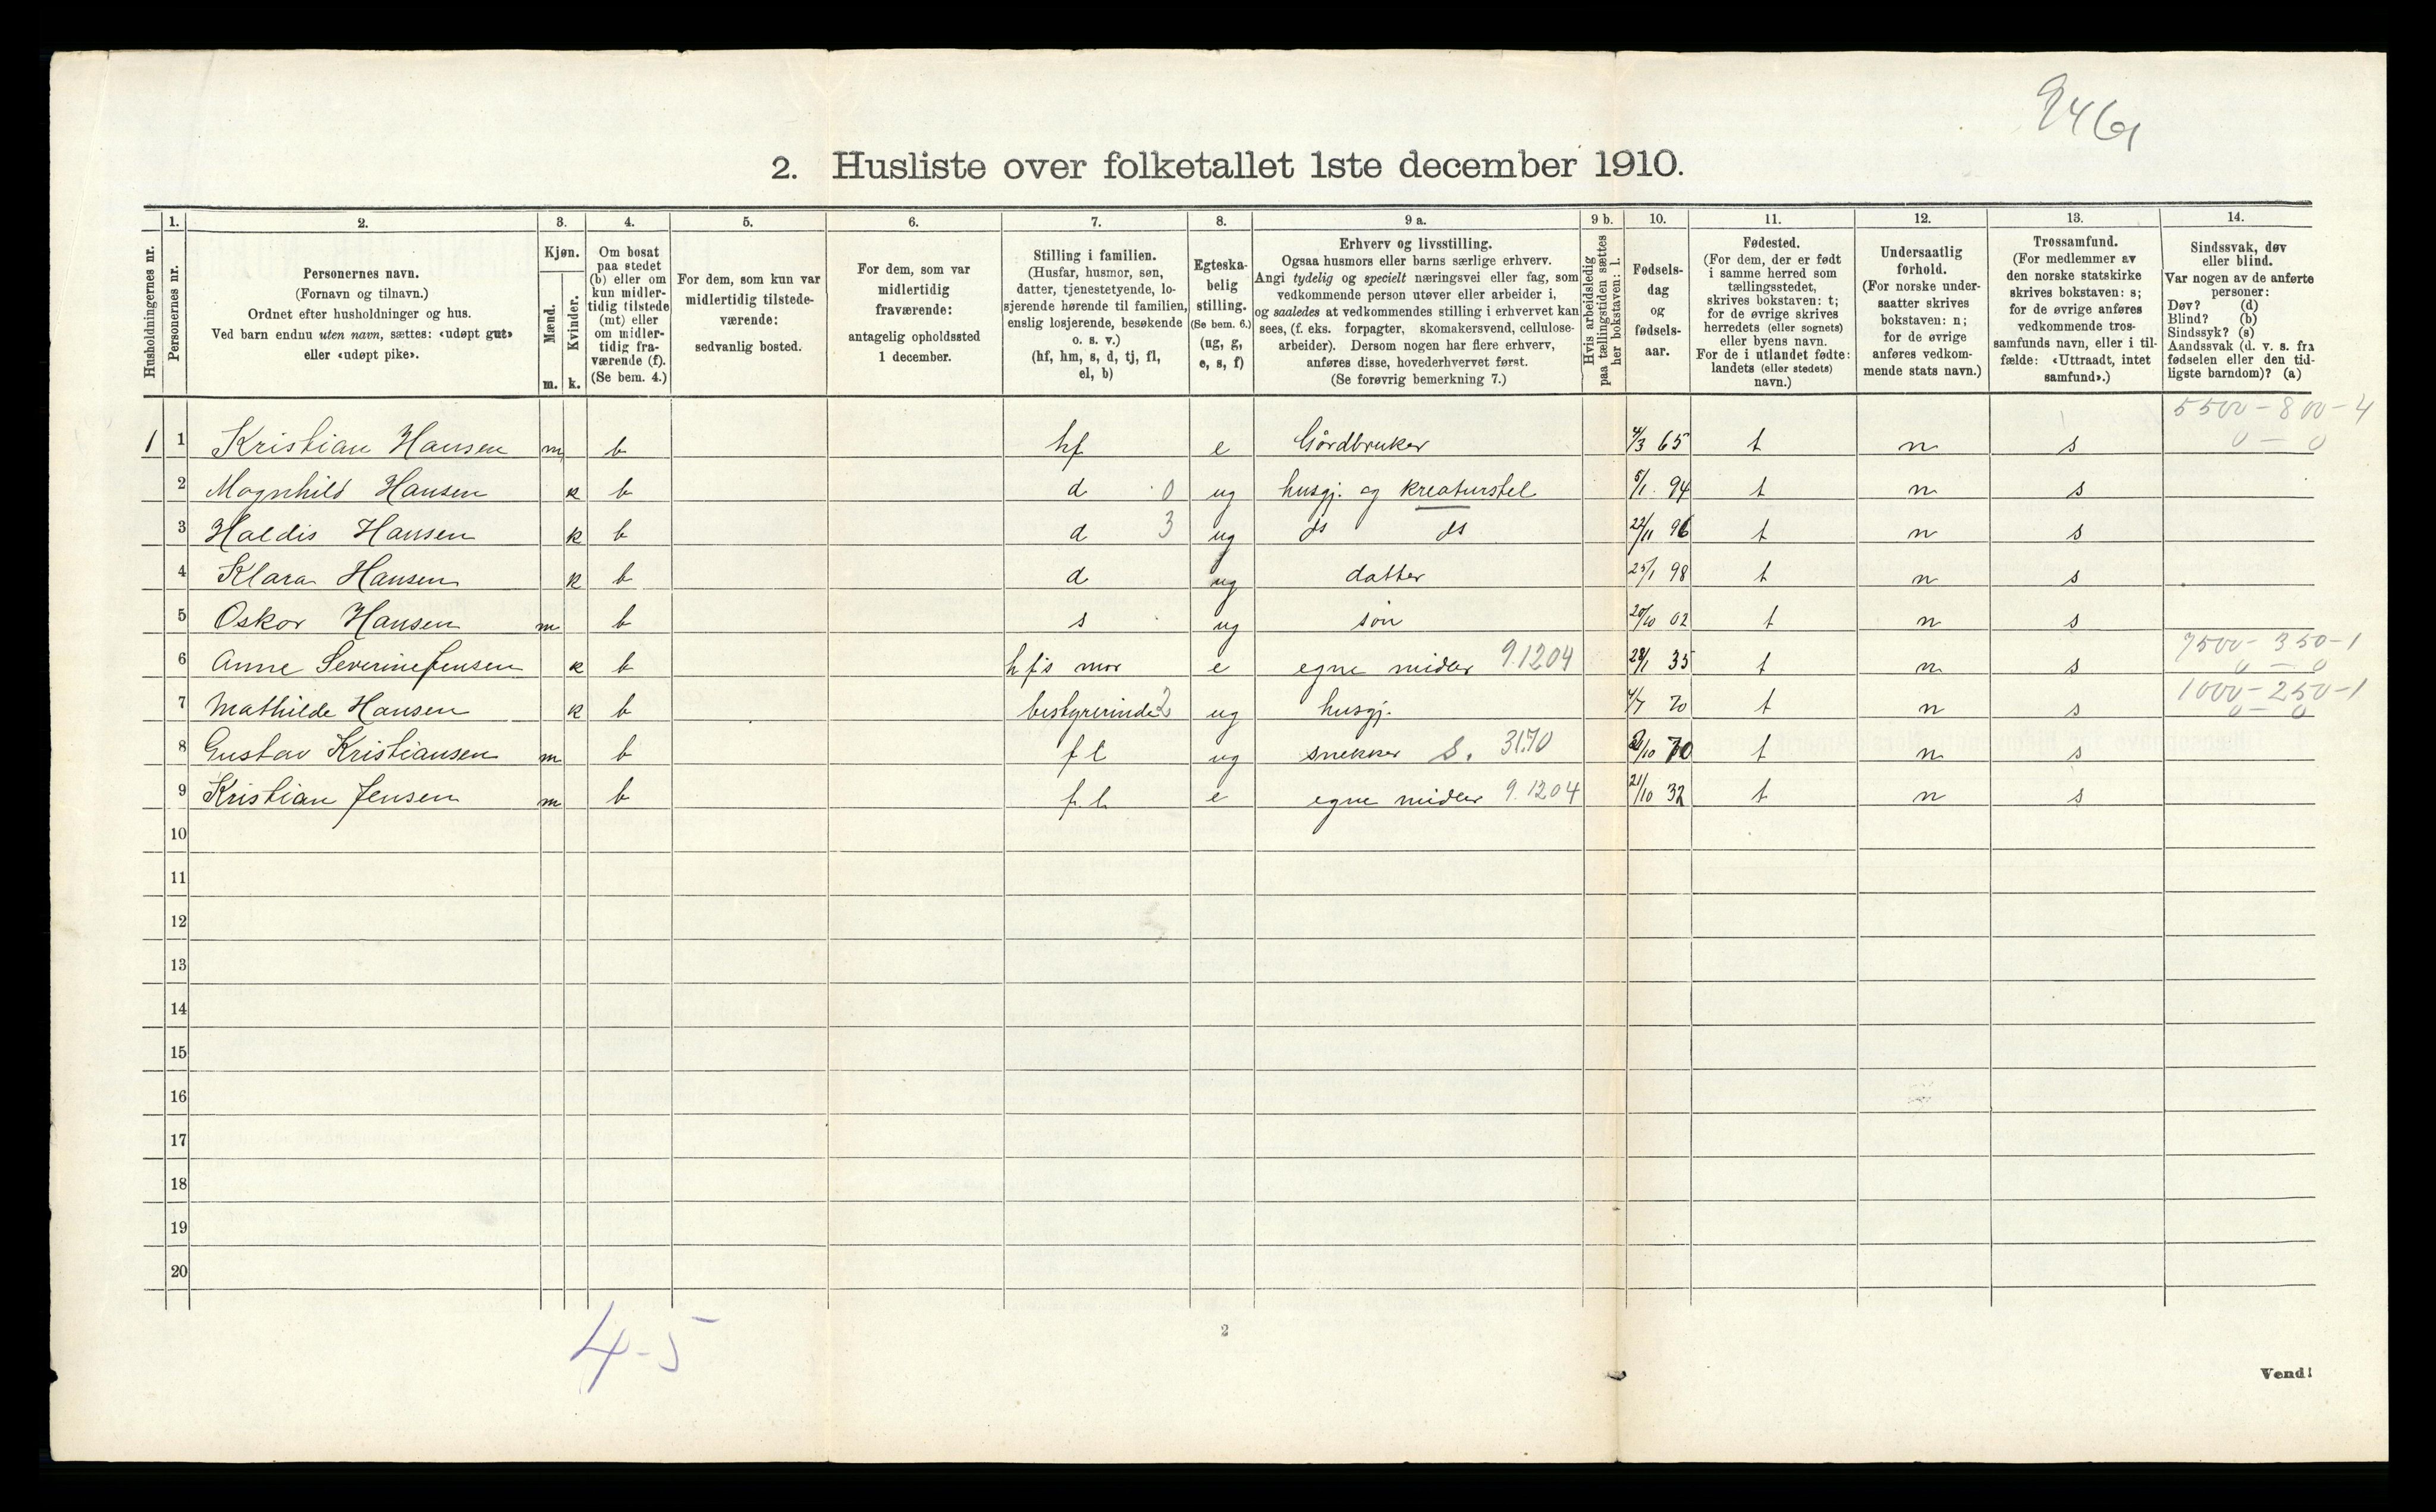 946
2. Husliste over folketallet 1ste december 1910.
Husholdningernes nr.
1.
Personernes nr.
2.
Personernes navn.
(Fornavn og tilnavn.)
Ordnet efter husholdninger og hus.
Ved barn endnu uten navn, sættes: «udøpt gut»
eller «udøpt pike».
3.
Kjøn.
Mænd.
Kvinder.
m. k.
4.
Om bosat
paa stedet
(b) eller om
kun midler-
tidig tilstede
(mt) eller
om midler-
tidig fra-
værende (f).
(Se bem. 4.)
5.
For dem, som kun var
midlertidig tilstede-
værende:
sedvanlig bosted.
6.
For dem, som var
midlertidig
fraværende:
antagelig opholdssted
1 december.
7.
Stilling i familien.
(Husfar, husmor, søn,
datter, tjenestetyende, lo-
sjerende hørende til familien,
enslig losjerende, besøkende
o. s. v.)
(hf, hm, s, d, tj, fl,
el, b)
8.
Egteska-
belig
stilling.
(Se bem. 6.)
(ug, g,
e, s, f)
9 a.
Erhverv og livsstilling.
Ogsaa husmors eller barns særlige erhverv.
Angi tydelig og specielt næringsvei eller fag, som
vedkommende person utøver eller arbeider i,
og saaledes at vedkommendes stilling i erhvervet kan
sees, (f. eks. forpagter, skomakersvend, cellulose-
arbeider). Dersom nogen har flere erhverv,
anføres disse, hovederhvervet først.
(Se forøvrig bemerkning 7.)
9 b.
Hvis arbeidsledig
paa tællingstiden sættes
her bokstaven: l.
10.
Fødsels-
dag
og
fødsels-
aar.
11.
Fødested.
(For dem, der er født
i samme herred som
tællingsstedet,
skrives bokstaven: t;
for de øvrige skrives
herredets (eller sognets)
eller byens navn.
For de i utlandet fødte:
landets (eller stedets)
navn.)
12.
Undersaatlig
forhold.
(For norske under-
saatter skrives
bokstaven: n;
for de øvrige
anføres vedkom-
mende stats navn.)
13.
Trossamfund.
(For medlemmer av
den norske statskirke
skrives bokstaven: s;
for de øvrige anføres
vedkommende tros-
samfunds navn, eller i til-
fælde: «Uttraadt, intet
samfund».)
14.
Sindssvak, døv
eller blind.
Var nogen av de anførte
personer:
Døv? (d)
Blind? (b)
Sindssyk? (s)
Aandssvak (d. v. s. fra
fødselen eller den tid-
ligste barndom)? (a)
5500-800-4
1 1 Kristian Hansen m b hf e Gårdbruker 4/3 65 t n s 0-0
2 Magnhild Hansen k b d 0 ug husgj. og kreaturstel 5/1 94 t n s
3 Haldis Hansen k b d 3 ug ds ds 22/11 96 t n s
4 Klara Hansen k b d ug datter 25/1 98 t n s
5 Oskar Hansen m b s ug søn 20/10 02 t n s
7500-350-1
6 Anne Severine Jensen k b hf's mor e egne midler 9.1204 28/1 35 t n s 0-0
1000-250-1
7 Mathilde Hansen k b bestyrerinde 2 ug husgj. 4/7 70 t n s 0-0
8 Gustav Kristiansen m b fl ug snekker S. 31.70 /10 70 t n s
9 Kristian Jensen m b fl e egne midler 9.1204 21/10 32 t n s
10
11
12
13
14
15
16
17
18
19
20
4-5
2
Vend!